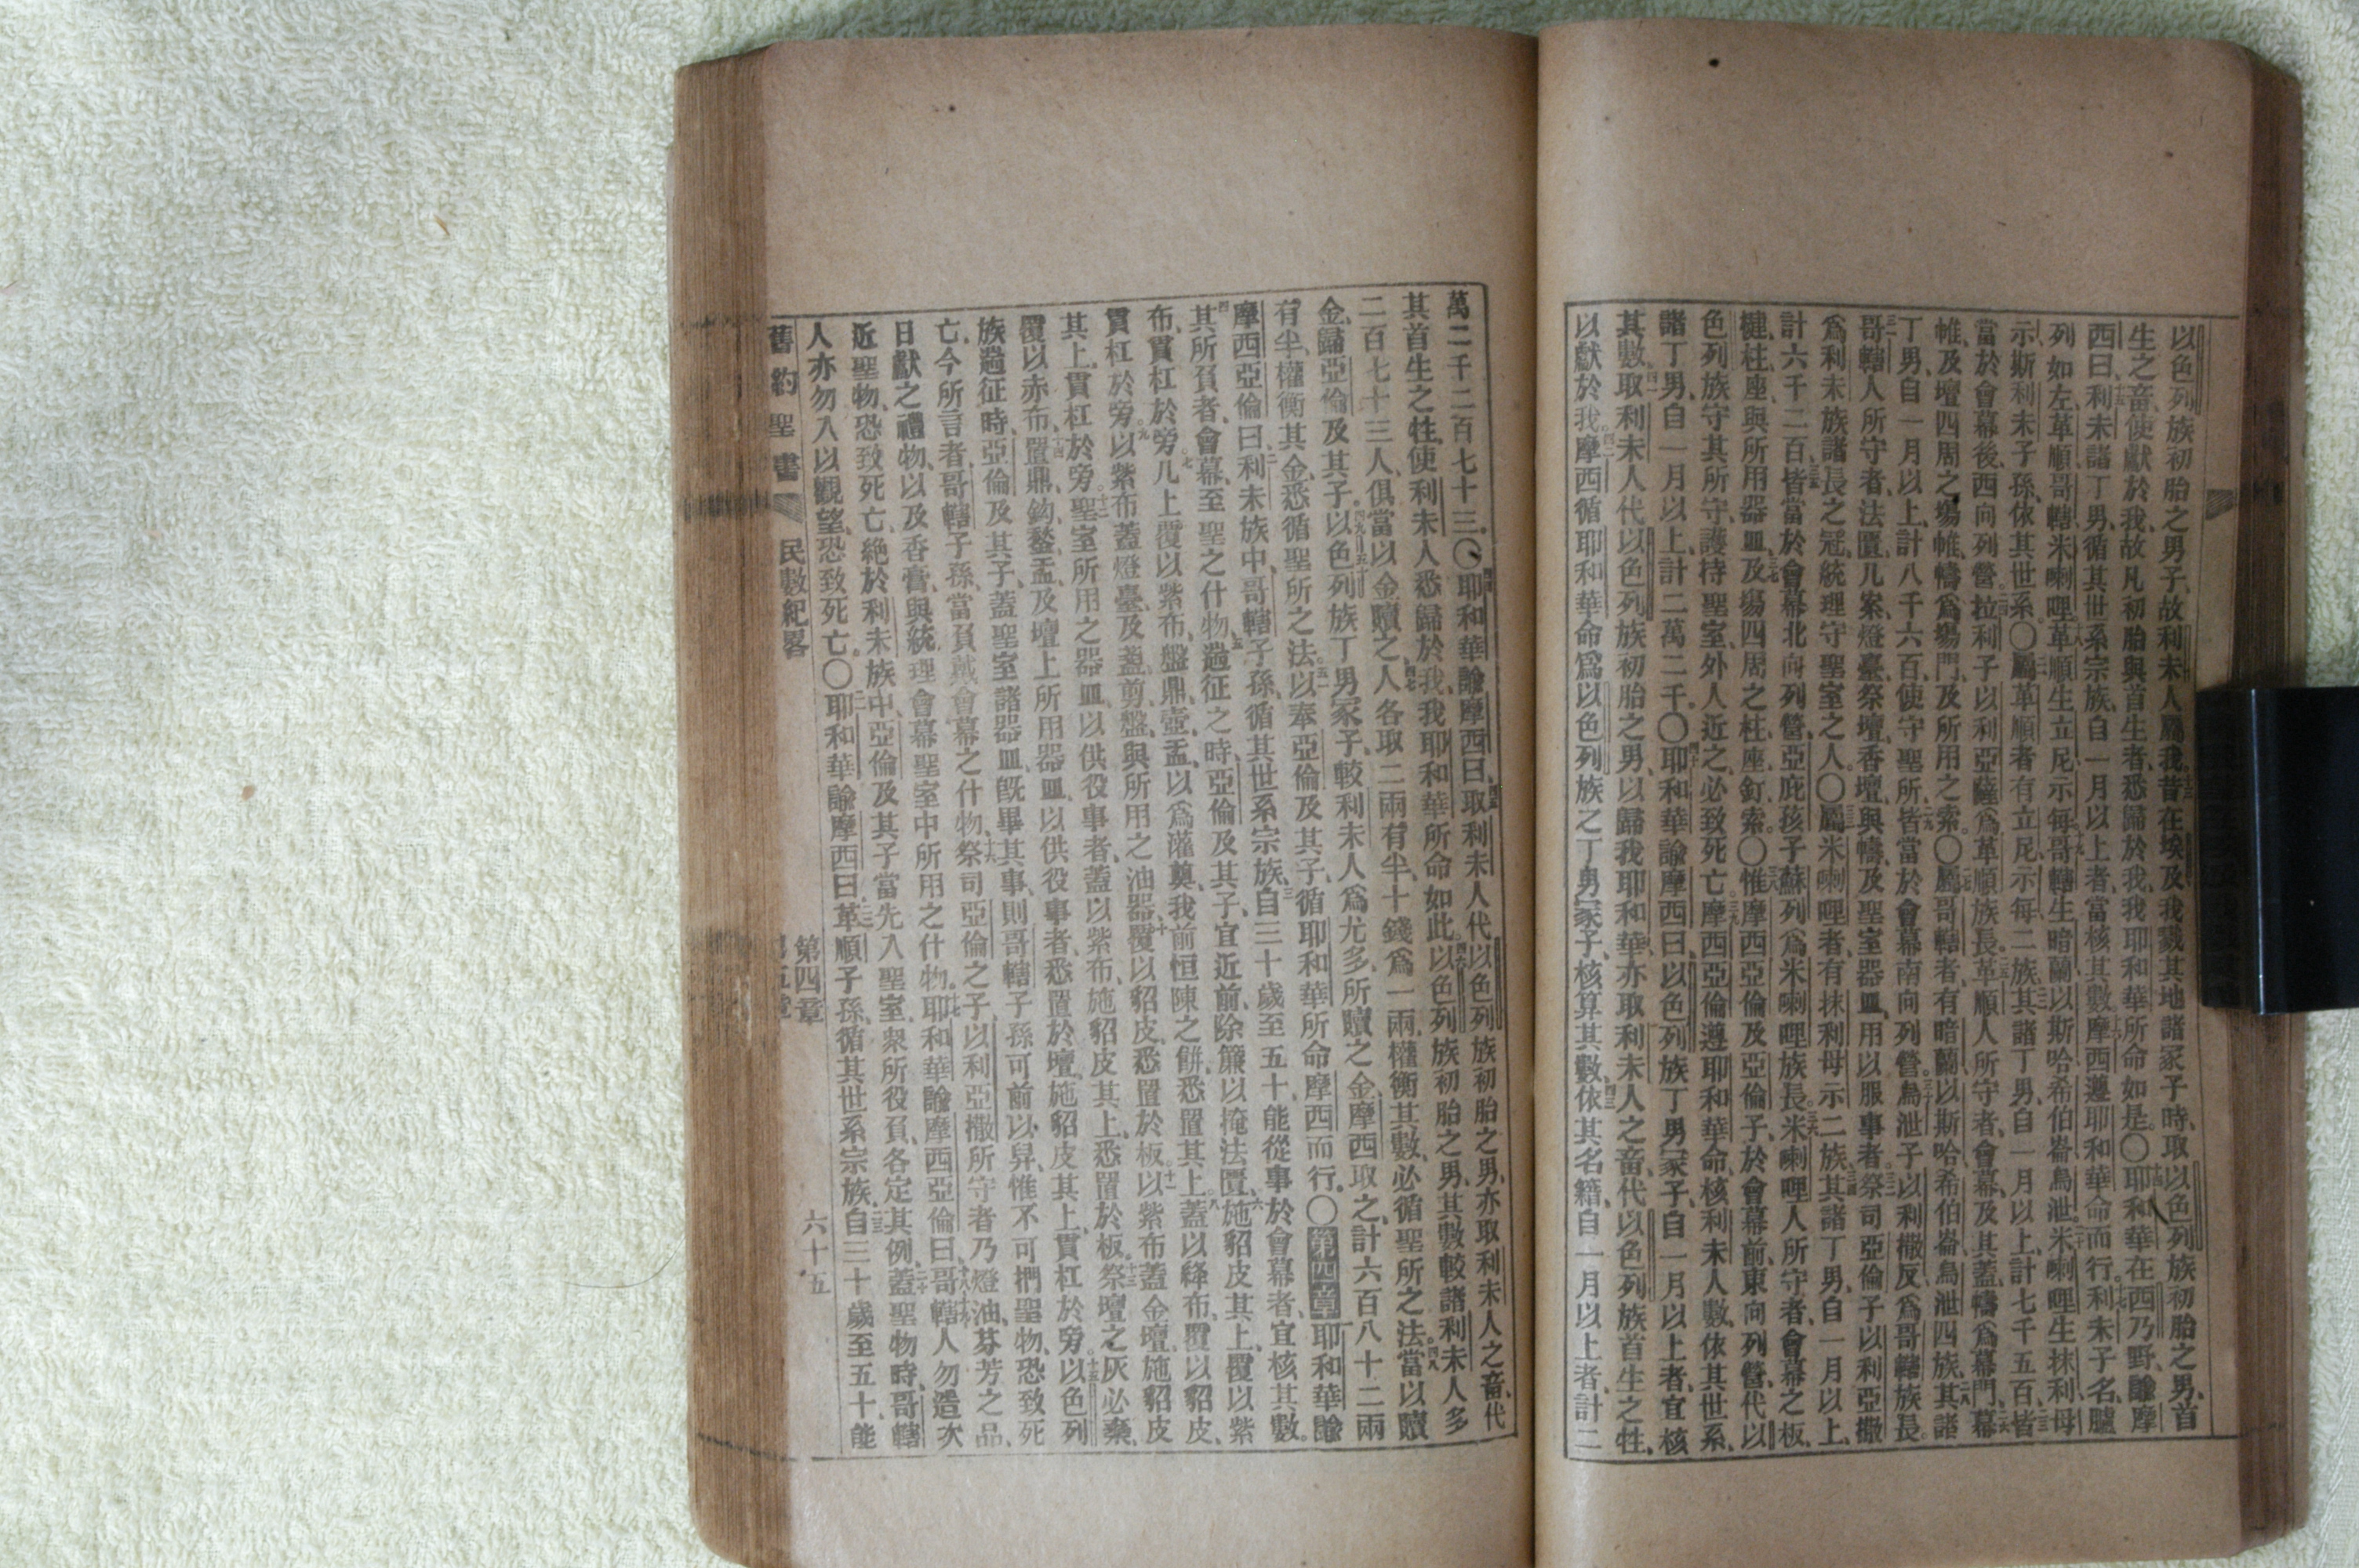 以色列族初胎之男子、故利未人屬我、昔在埃及、我戮其地諸冢子時、取以色列族初胎之男、首
生之畜、使獻於我、故凡初胎與首生者、悉歸於我、我耶和華所命如是。〇耶和華在西乃野、諭摩
西曰、利未諸丁男、循其世系宗族、自一月以上者、當核其數、摩西遵耶和華命而行、利未子名臚
列如左、革順、哥轄、米喇哩、革順生立尼、示每、哥轄生暗蘭、以斯哈、希伯崙、烏泄、米喇哩生抹利、母
示、斯利未子孫、依其世系。〇屬革順者、有立尼、示每、二族、其諸丁男、自一月以上、計七千五百、皆
當於會幕後、西向列營、拉利子以利亞薩、為革順族長、革順人所守者、會幕及其蓋、幬為幕門、幕
帷、及壇四周之場帷、幬為場門、及所用之索。〇屬哥轄者、有暗蘭、以斯哈、希伯崙、烏泄四族、其諸
丁男、自一月以上、計八千六百、使守聖所、皆當於會幕南向列營、烏泄子以利撒反、為哥轄族長。
哥轄人所守者、法匱、几案、燈臺、祭壇、香壇、與幬、及聖室器皿、用以服事者、祭司亞倫子以利亞撒
為利未族諸長之冠、統理守聖室之人。〇屬米喇哩者、有抹利母示二族、其諸丁男、自一月以上、
計六千二百、皆當於會幕北向列營、亞庇孩子蘇列、為米喇哩族長、米喇哩人所守者、會幕之板、
楗、柱、座、與所用器皿、及場四周之柱、座、釘、索。〇惟摩西亞倫、及亞倫子、於會幕前、東向列營、代以
色列族守其所守、護持聖室、外人近之、必致死亡、摩西亞倫遵耶和華命、核利未人數、依其世系、
諸丁男、自一月以上、計二萬二千。〇耶和華諭摩西曰、以色列族丁男冢子、自一月以上者、宜核
其數、取利未人代以色列族初胎之男、以歸我耶和華、亦取利未人之畜、代以色列族首生之牲、
以獻於我。摩西循耶和華命、為以色列族之丁男冢子、核算其數、依其名籍、自一月以上者、計二
萬二千二百七十三。〇耶和華諭摩西曰、取利未人代以色列族初胎之男、亦取利未人之畜、代
其首生之牲、使利未人悉歸於我、我耶和華所命如此。以色列族初胎之男、其數較諸利未人多
二百七十三人、俱當以金贖之、人各取二兩有半、十錢為一兩、權衡其數、必循聖所之法、當以贖
金、歸亞倫及其子。以色列族丁男冢子、較利未人為尤多、所贖之金、摩西取之、計六百八十二兩
有半、權衡其金、悉循聖所之法、以奉亞倫及其子、循耶和華所命摩西而行。〇第四章耶和華諭
摩西亞倫曰、利未族中、哥轄子孫、循其世系宗族、自三十歲至五十、能從事於會幕者、宜核其數。
其所負者、會幕、至聖之什物、遄征之時、亞倫及其子、宜近前除簾、以掩法匱、施貂皮其上、覆以紫
布、貫杠於旁。几上覆以紫布、盤鼎、壺盂、以為灌奠、我前恒陳之餅、悉置其上。蓋以絳布、覆以貂皮、
貫杠於旁。以紫布蓋燈臺、及盞、剪、盤、與所用之油器、覆以貂皮、悉置於板。以紫布蓋金壇、施貂皮
其上、貫杠於旁。聖室所用之器皿、以供役事者、蓋以紫布、施貂皮其上、悉置於板。祭壇之灰必棄、
覆以赤布、置鼎、鈎、鏊、盂、及壇上所用器皿、以供役事者、悉置於壇、施貂皮其上、貫杠於旁。以色列
族遄征時、亞倫及其子、蓋聖室諸器皿旣畢其事、則哥轄子孫可前以舁、惟不可捫聖物、恐致死
亡、今所言者、哥轄子孫、當負戴會幕之什物、祭司亞倫之子以利亞撒所守者、乃燈油、芬芳之品、
日獻之禮物、以及香膏、與統理會幕聖室中所用之什物。耶和華諭摩西亞倫曰、哥轄人勿造次
近聖物、恐致死亡、絕於利未族中、亞倫及其子、當先入聖室、衆所役負、各定其例、蓋聖物時、哥轄
人亦勿入以觀望、恐致死亡。〇耶和華諭摩西曰、革順子孫、循其世系宗族、自三十歲至五十、能
舊約聖書 民數紀畧 第四章 第五章 六十五